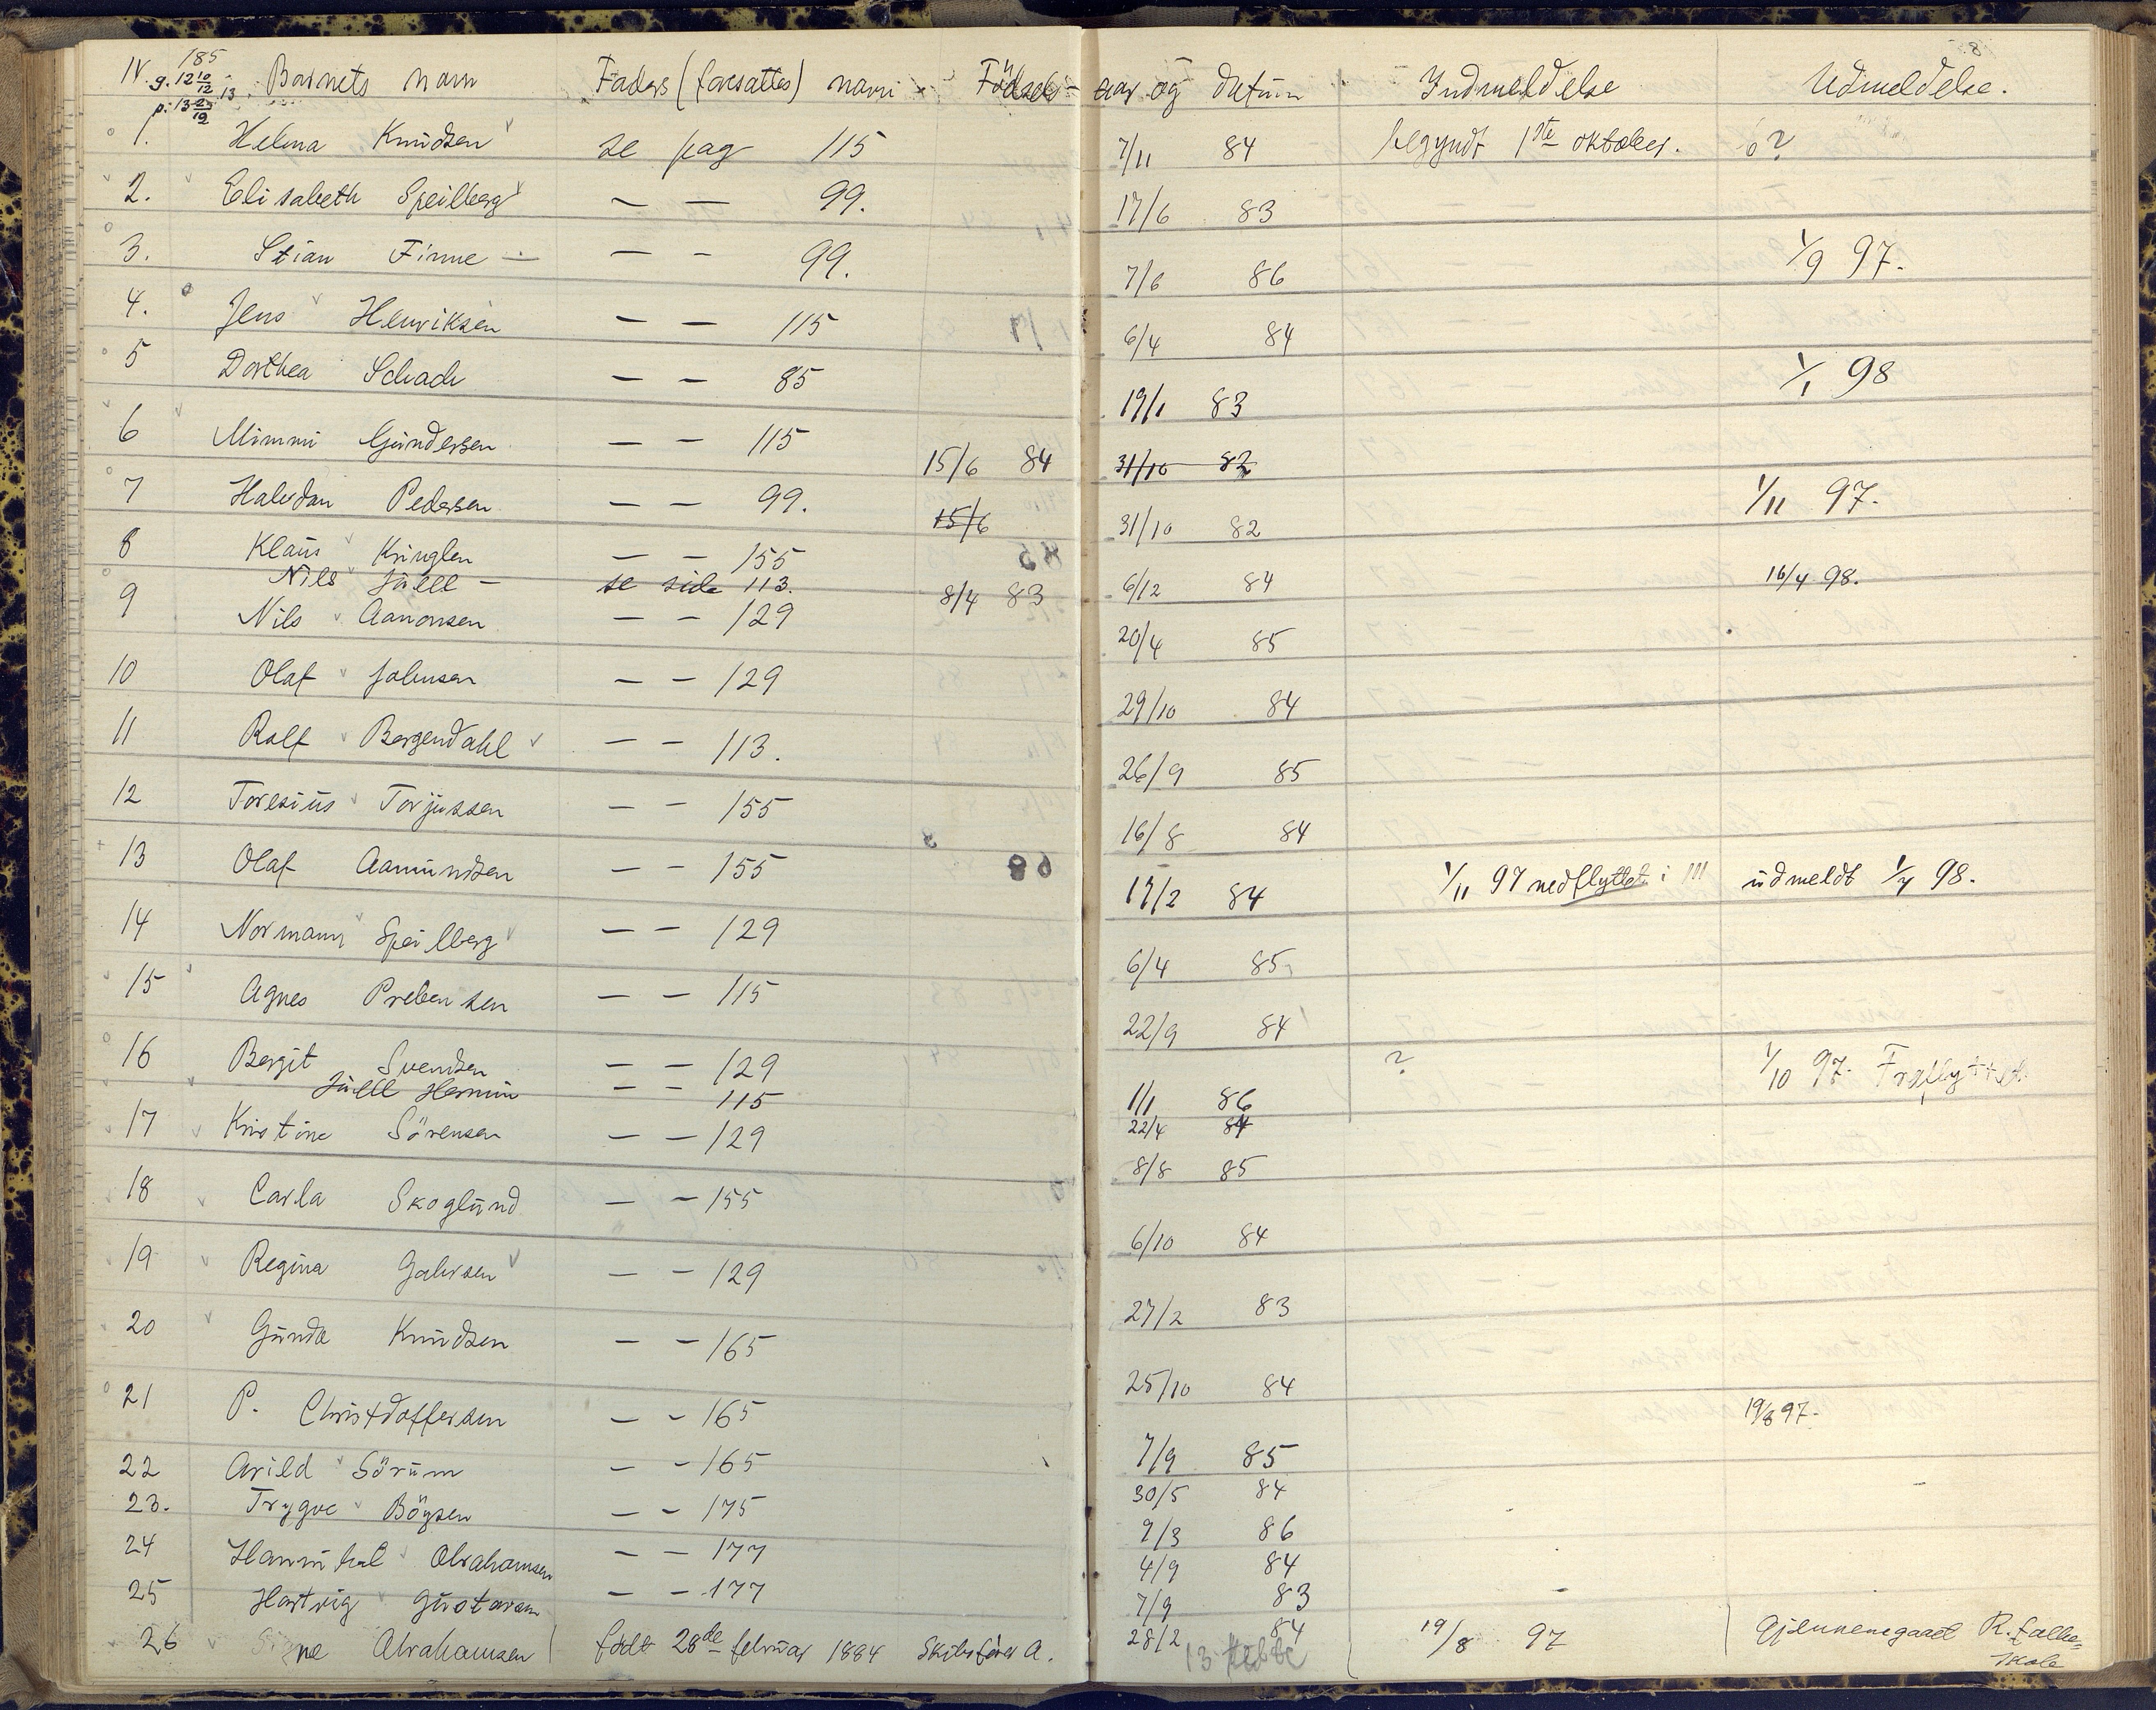 185
IV. g. 12 10/12 Barnets navn Faders (foresattes) navn Födsels- aar og datum Indmeldelse Udmeldelse. 8
p. 13
1. Helma Knudsen se pag 115 7/11 84 begyndt 1ste oktober. 6?
2. Elisabeth Speilberg — — 99. 17/6 83
3. Stian Finne — — — 99. 7/6 86 1/9 97.
4. Jens Henriksen — — 115 6/4 84
5 Dorthea Schach — — 85 19/1 83 1/1 98
6 Mimmi Gundersen — — 115 15/6 84 31/10 82
7 Halvdan Pedersen — — 99. 15/6 31/10 82 1/11 97.
8 Klaus Kringlen — — 155 6/12 84 16/4 98.
Nils Juell — se side 113. 8/4 83
9 Nils Aanonsen — — 129 20/4 85
10 Olaf Johnsen — — 129 29/10 84
11 Rolf Bergendahl — — 113. 26/9 85
12 Toresius Torjussen — — 155 16/8 84
13 Olaf Aamundsen — — 155 17/2 84 1/11 97 nedflyttet i III udmeldt 1/4 98.
14 Normann Speilberg — — 129 6/4 85
15 Agnes Prebensen — — 115 22/9 84
16 Bergit Svendsen — — 129 1/1 86 ? 1/10 97. Fraflyttet
Juell Hermin — — 115 22/4 84
17 Kristine Sörensen — — 129 8/8 85
18 Carla Skoglund — — 155 6/10 84
19 Regina Jahrsen — — 129 27/2 83
20 Gunda Knudsen — — 165 25/10 84
21 P. Christdoffersen — — 165 7/9 85 19/8 97.
22 Arild Sörum — — 165 30/5 84
23. Trygve Böysen — — 175 9/3 86
24 Hannibal Abrahamsen — — 177 4/9 84
25 Hartvig Gustavsen — — 177 7/9 83
26 Signe Abrahamsen født 28de februar 1884 Skibsfører A. 28/2 84 19/8 97 Gjennemgaaet R. folke-
13 skole